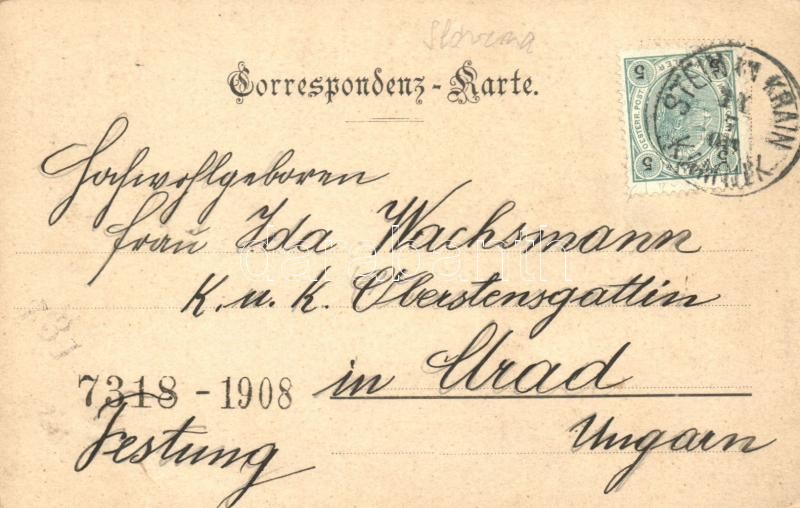 Slovenia
Correspondenz-Karte.
5 5
OESTERR. POST
5 5
STEIN IN KRAIN
KAMNIK
Hochwohlgeboren
Frau Ida Wachsmann
K. u. K. Oberstensgattin
7318 - 1908 in Arad
Festung Ungarn
darabanth